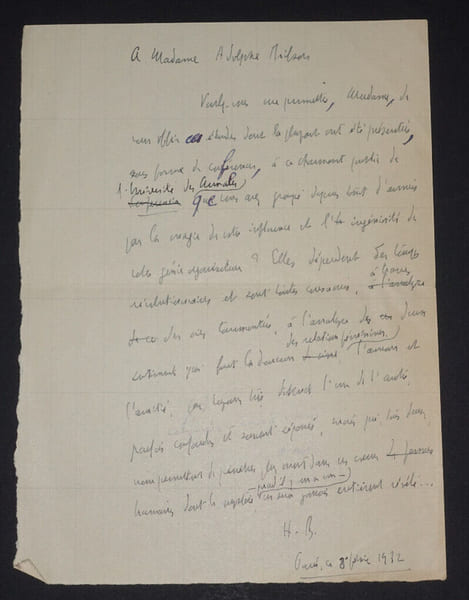 A Madame Adolphe Brisson
Voulez-vous me permettre, Madame, de
vous offrir ces études dont la plupart ont été présentées,
sous forme de conférences, à ce charmant public de
l'Université des Annales
Conferencia que vous avez groupé depuis tant d'années
par la magie de votre influence et l'ingéniosité de
votre génie organisateur ? Elles dépendent des temps
révolutionnaires et sont toutes consacrées, à travers
à l'analyse
des vies tourmentées, à l'analyse des deux
des relations féminines
sentiments qui font la douceur l'amour et
l'amitié, de l'un et de l'autre,
parfois confondus et souvent séparés, mais qui tous deux
nous permettent de pénétrer plus avant dans ces cœurs
humains dont le mystère ne sera jamais entièrement révélé...
H. B.
Paris, ce 1932